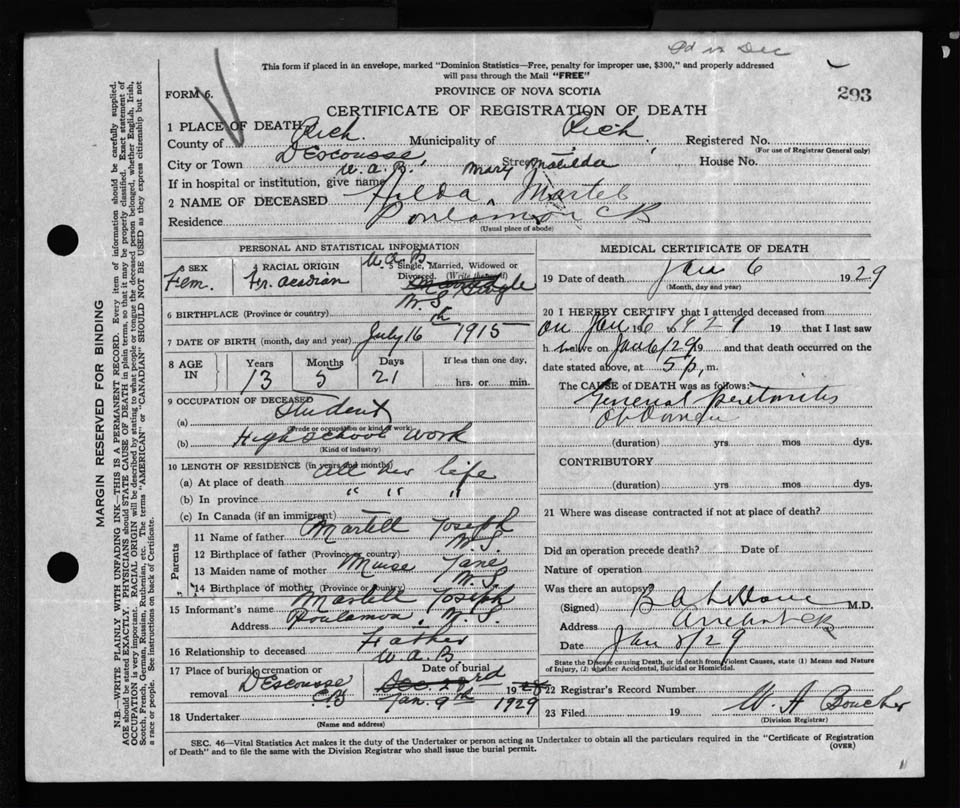 Pd in Dec
This form if placed in an envelope, marked "Dominion Statistics—Free, penalty for improper use, $300," and properly addressed
will pass through the Mail "FREE"
PROVINCE OF NOVA SCOTIA
FORM 6.
293
CERTIFICATE OF REGISTRATION OF DEATH
1 PLACE OF DEATH
County of Rich. Municipality of Rich Registered No.
(For use of Registrar General only)
City or Town DEscousse, Street House No.
W.A.B. Mary Matilda
If in hospital or institution, give name
2 NAME OF DECEASED Hilda Martel
Residence Poulamon CB
(Usual place of abode)
PERSONAL AND STATISTICAL INFORMATION
W.A.B
3 SEX 4 RACIAL ORIGIN 5 Single, Married, Widowed or
Divorced. (Write the word)
Fem. Fr. Acadian Single
N.S.
6 BIRTHPLACE (Province or country)
7 DATE OF BIRTH (month, day and year) July 16th 1915
8 AGE IN Years Months Days If less than one day,
13 5 21 hrs. or min.
9 OCCUPATION OF DECEASED
(a) Student
(Trade or occupation or kind of work)
(b) High School Work
(Kind of industry)
10 LENGTH OF RESIDENCE (in years and months)
(a) At place of death All her life
(b) In province " " "
(c) In Canada (if an immigrant)
Parents
11 Name of father Martell Joseph
12 Birthplace of father (Province or country) N.S.
13 Maiden name of mother Jane
14 Birthplace of mother (Province or country) N.S.
15 Informant's name Martell Joseph
Address Poulamon, N.S.
16 Relationship to deceased Father
W.A.B.
17 Place of burial, cremation or removal Date of burial
DEscousse CB Dec 23rd 1928
Jan. 9th 1929
18 Undertaker
(Name and address)
MEDICAL CERTIFICATE OF DEATH
19 Date of death Jan 6 1929
(Month, day and year)
20 I HEREBY CERTIFY that I attended deceased from
on Jan 6 1929 19 that I last saw
h alive on Jan 6/29 19 and that death occurred on the
date stated above, at 5 p. m.
The CAUSE of DEATH was as follows:
General peritonitis
(duration) yrs mos dys.
CONTRIBUTORY
(duration) yrs mos dys.
21 Where was disease contracted if not at place of death?
Did an operation precede death? Date of
Nature of operation
Was there an autopsy
(Signed) M.D.
Address Arichat CB
Date Jan 8/29
State the Disease causing Death, or in death from Violent Causes, state (1) Means and Nature
of Injury, (2) whether Accidental, Suicidal or Homicidal.
22 Registrar's Record Number
23 Filed 19 W. A Boucher
(Division Registrar)
SEC. 46—Vital Statistics Act makes it the duty of the Undertaker or person acting as Undertaker to obtain all the particulars required in the "Certificate of Registration
of Death" and to file the same with the Division Registrar who shall issue the burial permit.
(OVER)
MARGIN RESERVED FOR BINDING
N.B.—WRITE PLAINLY WITH UNFADING INK—THIS IS A PERMANENT RECORD. Every item of information should be carefully supplied.
AGE should be stated EXACTLY. PHYSICIANS should STATE CAUSE OF DEATH in plain terms, so that it may be properly classified. Exact statement of
OCCUPATION is very important. RACIAL ORIGIN will be described by stating to what people or tongue the deceased person belonged, whether English, Irish,
Scotch, French, German, Russian, Ruthenian, etc. The terms "AMERICAN" or "CANADIAN" SHOULD NOT BE USED as they express citizenship but not
a race or people. See instructions on back of Certificate.